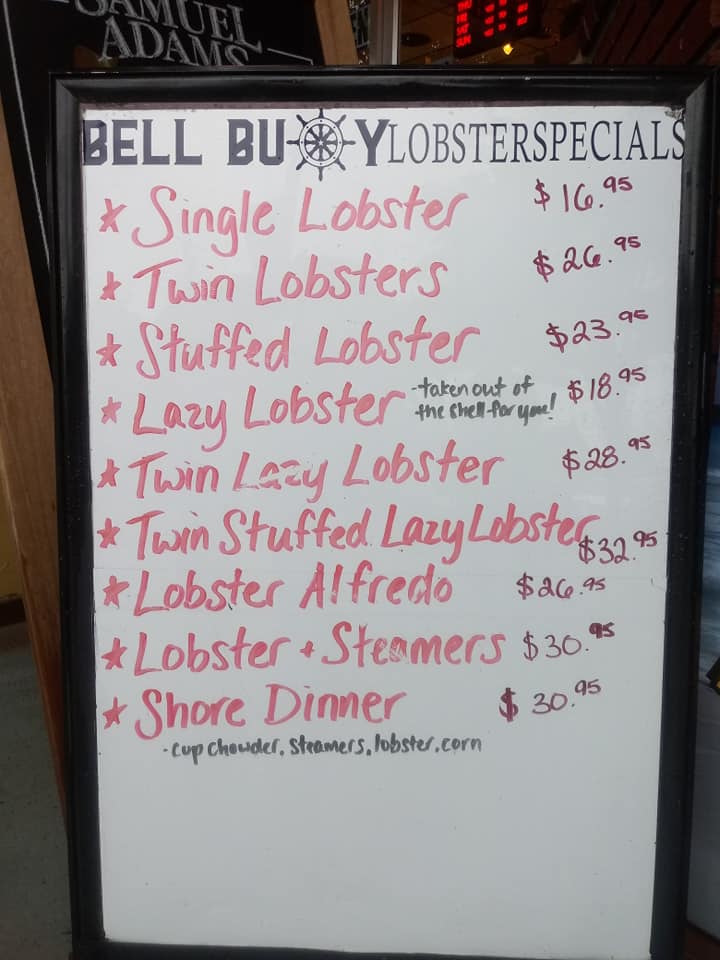 SAMUEL
ADAMS
THU
FRI
SAT
SUN
BELL BUOY LOBSTER SPECIALS
* Single Lobster $16.95
* Twin Lobsters $26.95
* Stuffed Lobster $23.95
* Lazy Lobster -taken out of the shell for you! $18.95
* Twin Lazy Lobster $28.95
* Twin Stuffed Lazy Lobster $32.95
* Lobster Alfredo $26.95
* Lobster + Steamers $30.95
* Shore Dinner $30.95
-cup chowder, steamers, lobster, corn